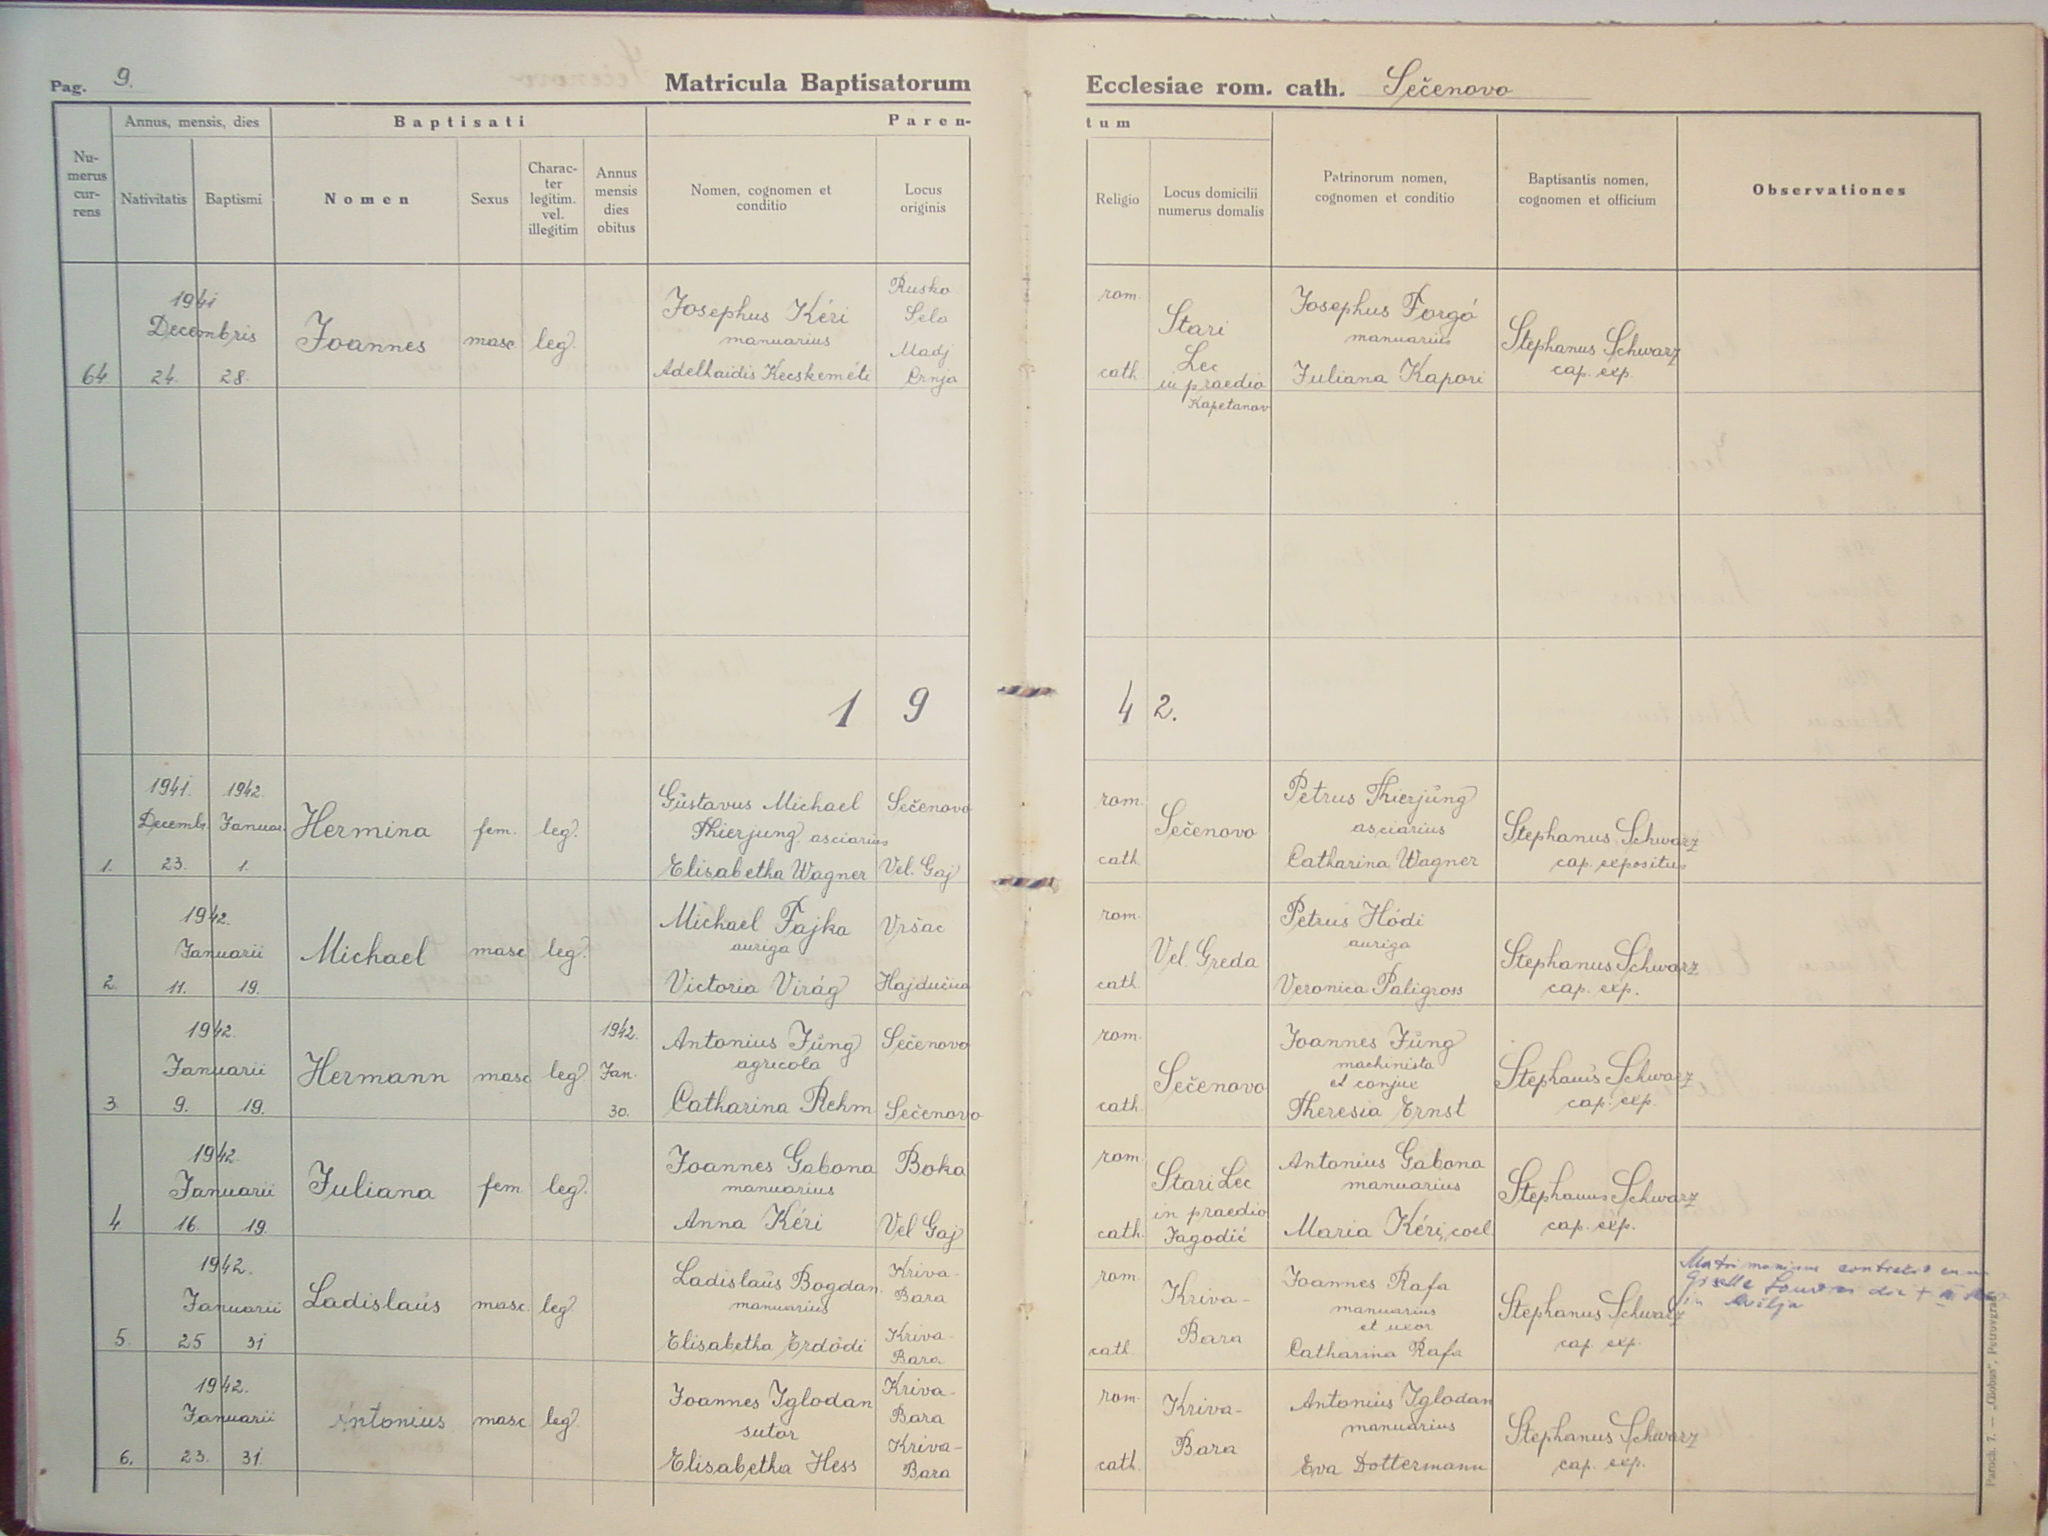 Pag. 9.
Matricula Baptisatorum
Ecclesiae rom. cath. Sečenovo
Numerus currens
Annus, mensis, dies
Nativitatis
Baptismi
Baptisati
Nomen
Sexus
Charac-
ter
legitim.
vel.
illegitim
Annus
mensis
dies
obitus
Paren-
tum
Nomen, cognomen et
conditio
Locus
originis
Religio
Locus domicilii
numerus domalis
Patrinorum nomen,
cognomen et conditio
Baptisantis nomen,
cognomen et officium
Observationes
64
1941
Decembris
24. 28.
Joannes
masc. leg.
Josephus Kéri
manuarius
Adelhaidis Kecskeméti
Rusko
Selo
Madj
Crnja
rom.
cath.
Stari
Lec
in praedio
Kapetanov
Josephus Forgó
manuarius
Juliana Kapori
Stephanus Schwarz
cap. exp.
1 9 4 2.
1.
1941. 1942.
Decemb. Januar.
23. 1.
Hermina
fem. leg.
Gustavus Michael
Thierjung asciarius
Elisabetha Wagner
Sečenovo
Vel. Gaj
rom.
cath.
Sečenovo
Petrus Thierjung
asciarius
Catharina Wagner
Stephanus Schwarz
cap. expositus
2.
1942.
Januarii
11. 19.
Michael
masc leg.
Michael Fajka
auriga
Victoria Virág
Vršac
Hajdučica
rom.
cath.
Vel. Greda
Petrus Hódi
auriga
Veronica Paligross
Stephanus Schwarz
cap. exp.
3.
1942.
Januarii
9. 19.
Hermann
masc leg.
1942.
Jan.
30.
Antonius Jung
agricola
Catharina Rehm
Sečenovo
Sečenovo
rom.
cath.
Sečenovo
Joannes Jung
machinista
et conjux
Theresia Ernst
Stephanus Schwarz
cap. exp.
4
1942.
Januarii
16. 19.
Juliana
fem leg.
Joannes Gabona
manuarius
Anna Kéri
Boka
Vel Gaj
rom.
cath.
Stari Lec
in praedio
Jagodić
Antonius Gabona
manuarius
Maria Kéri, coel.
Stephanus Schwarz
cap. exp.
5.
1942.
Januarii
25 31
Ladislaus
masc. leg.
Ladislaus Bogdan
manuarius
Elisabetha Erdődi
Kriva-
Bara
Kriva-
Bara
rom.
cath.
Kriva-
Bara
Joannes Rafa
manuarius
et uxor
Catharina Rafa
Stephanus Schwarz
cap. exp.
Matrimonium
in
6.
1942.
Januarii
23. 31.
Antonius
masc leg.
Joannes Iglodan
sutor
Elisabetha Hess
Kriva-
Bara
Kriva-
Bara
rom.
cath.
Kriva-
Bara
Antonius Iglodan
manuarius
Eva Dottermann
Stephanus Schwarz
cap. exp.
Paroch. 7. — „Globus", Petrovgrad